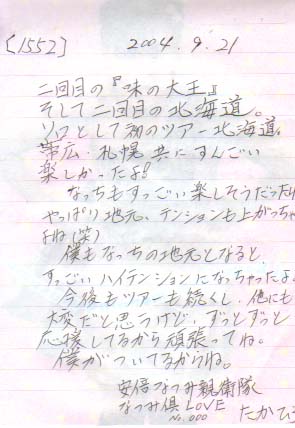 [1552] 2004.9.21
二回目の『味の大王』
そして二回目の北海道。
ソロとして初のツアー北海道。
帯広・札幌共にすんごい
楽しかったよ!!
なっちもすっごい楽しそうだったし
やっぱり地元、テンションも上がっちゃ
よね(笑)
僕もなっちの地元となると、
すっごいハイテンションになっちゃったよ。
今後もツアーも続くし、他にも
大変だと思うけど、ずっとずっと
応援してるから頑張ってね。
僕がついてるからね。
安倍なつみ親衛隊
なつみ倶LOVE
No.000 たかひろ